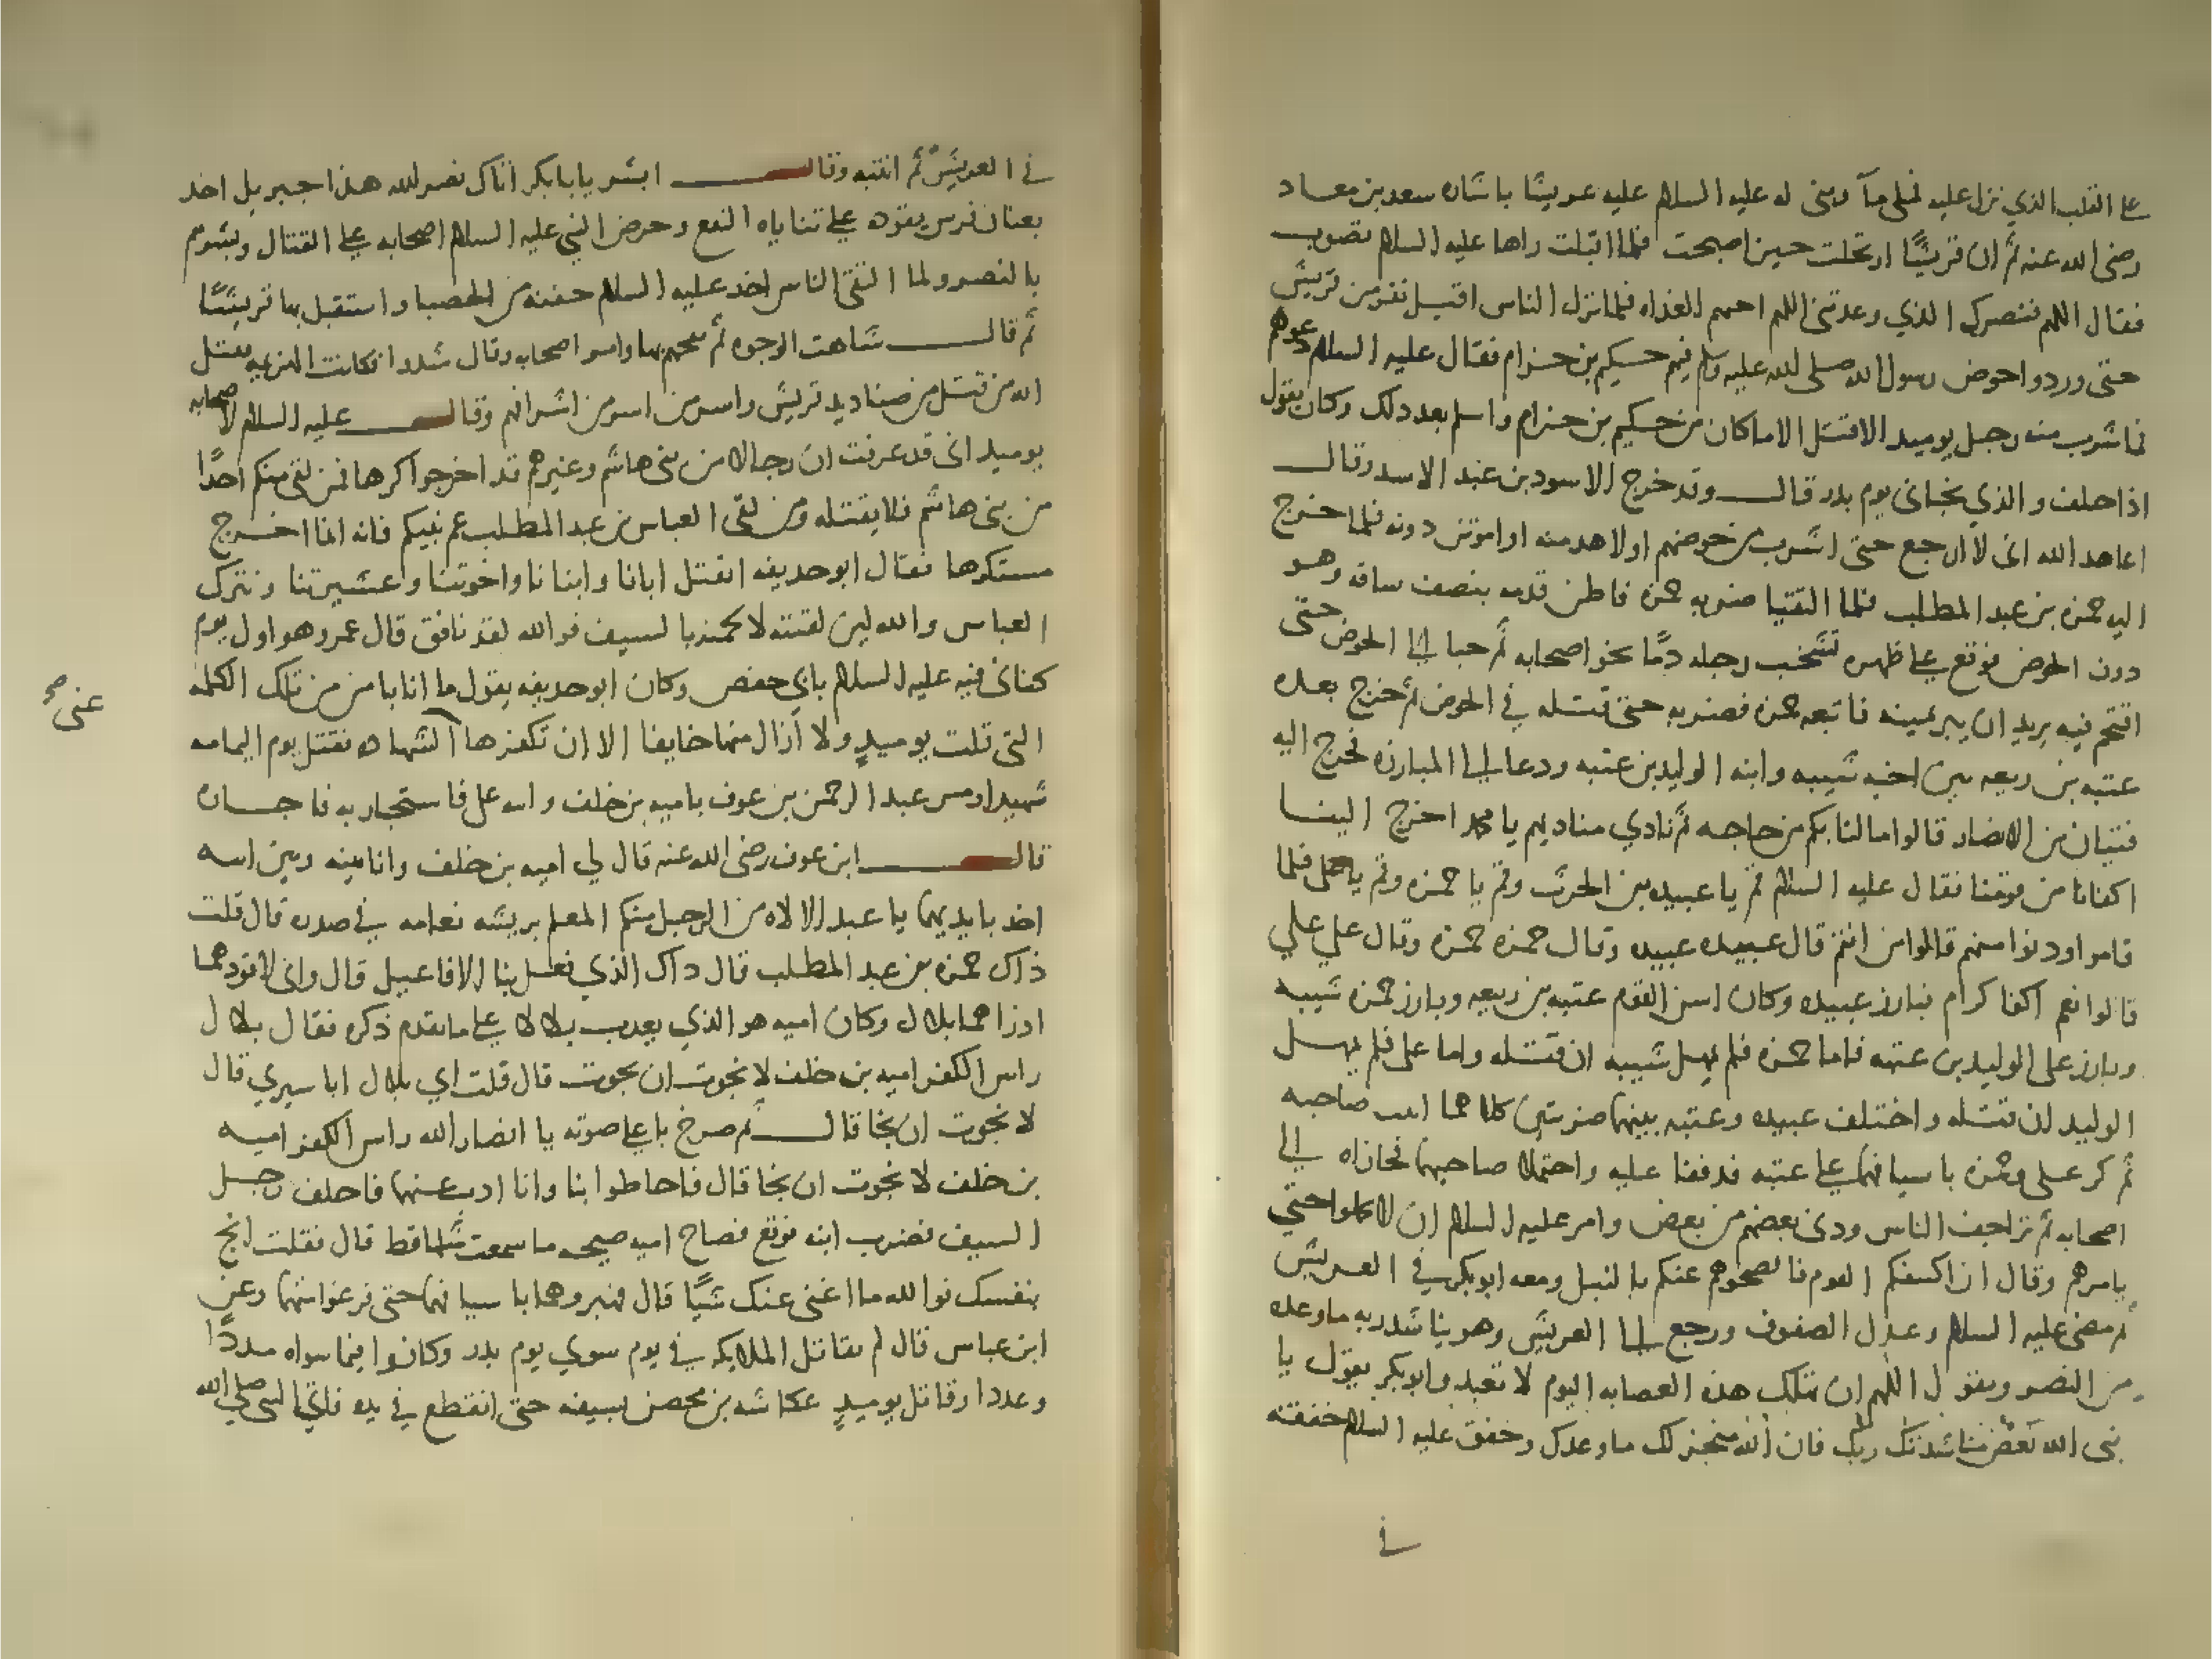 على القلب الذي نزل عليه فملي مآ وبنى له عليه السلام عليه عريشا باشاره سعد بن معاد
رضى الله عنه ثم ان قريشًا ارتحلت حين اصبحت فلما اقبلت راها عليه السلام تصوب
فقال اللهم فنصرك الذي وعدتنى اللهم احنهم الغداه فلما نزل الناس اقبل نفر من قريش
حتى وردوا حوض رسول الله صلى الله عليه وسلم فيهم حكيم بن حزام فقال عليه السلام دعوهم
فما شرب منه رجل يوميد الا قتل الا ماكان من حكيم بن حزام واسلم بعد دلك وكان يقول
اذا حلف والذي نجانى يوم بدر قال وقد خرج الاسود بن عبد الاسد وقال
اعاهد الله انى لا ارجع حتى اشرب من حوضهم اولاهدمنه او اموتن دونه فلما خرج
اليه حمزه بن عبد المطلب فلما التقيا ضربه حمزه فاطن قدمه بنصف ساقه وهو
دون الحوض فوقع على ظهره تشخب رجله دمًا نحو اصحابه ثم حبا الى الحوض حتى
اقتحم فيه يريد ان يبر يمينه فاتبعه حمزه فضربه حتى قتله في الحوض ثم خرج بعده
عتبه بن ربيعه بين اخيه شيبه وابنه الوليد بن عتبه ودعا الى المبارزه فخرج اليه
فتيان من الانصار قالوا مالنا بكم من حاجه ثم نادي مناديهم يا محمد اخرج الينا
اكفانا من قومنا فقال عليه السلام قم يا عبيده بن الحرث وقم يا حمزه وقم يا على فلما
قاموا ودنوا منهم قالوا من انتم قال عبيده عبيده وقال حمزه حمزه وقال علي علي
قالوا نعم اكفا كرام فبارز عبيده وكان اسن القوم عتبه بن ربيعه وبارز حمزه شيبه
وبارز على الوليد بن عتبه فاما حمزه فلم يمهل شيبه ان قتله واما على فلم يمهل
الوليد ان قتله واختلف عبيده وعتبه بينهما ضربتين كلاهما اثبت صاحبه
ثم كر على وحمزه باسيافهما على عتبه فدففا عليه واحتملا صاحبهما فحازاه الى
اصحابه ثم تزاحف الناس ودنى بعضهم من بعض وامر عليه السلام ان لا يحملوا حتى
يامرهم وقال ان اكتنفكم القوم فانضحوهم عنكم بالنبل ومعه ابو بكر في العريش
ثم مضى عليه السلام وعدل الصفوف ورجع الى العريش وهو يناشد ربه ما وعده
من النصر ويقول اللهم ان تهلك هذه العصابه اليوم لا تعبد وابو بكر يقول يا
نبى الله بعض مناشدتك ربك فان الله منجز لك ما وعدك وخفق عليه السلام خفقه
في
في العريش ثم انتبه وقال ابشر يا بابكر اتاك نصر الله هذا جبريل اخد
بعنان فرس يقوده على ثناياه النقع وحرض النبي عليه السلام اصحابه على القتال وبشرهم
بالنصر ولما التقى الناس اخد عليه السلام حفنه من الحصبا واستقبل بها قريشًا
ثم قال شاهت الوجوه ثم نفحهم بها وامر اصحابه وقال شدوا فكانت الهزيمه فقتل
الله من قتل من صناديد قريش واسر من اسر من اشرافهم وقال عليه السلام لاصحابه
يوميد انى قد عرفت ان رجالا من بنى هاشم وغيرهم قد اخرجوا كرها فمن لقى منكم احدًا
من بنى هاشم فلا يقتله ومن لقى العباس بن عبد المطلب عم نبيكم فانه انما اخرج
مستكرها فقال ابو حديفه انقتل ابانا وابنانا واخوتنا وعشيرتنا ونترك
العباس والله لين لقيته لا لحمنه بالسيف فوالله لقد نافق قال عمر وهو اول يوم
كنانى فيه عليه السلام بابي حفص وكان ابو حديفه يقول ما انا بامن من تلك الكلمه
التى قلت يوميدٍ ولا ازال منها خايفا الا ان تكفرها الشهاده فقتل يوم اليمامه
عنى صح
شهيدا ومر عبد الرحمن بن عوف باميه بن خلف وابنه على فاستجار به فاجاره
قال ابن عوف رضى الله عنه قال لي اميه بن خلف وانا بينه وبين ابنه
اخد بايديهما يا عبد الالاه من الرجل منكم المعلم بريشه نعامه في صدره قال قلت
ذاك حمزه بن عبد المطلب قال داك الذي فعل بنا الافاعيل قال وانى لاقودهما
ادراهما بلال وكان اميه هو الذي يعدب بلالا على ماتقدم ذكره فقال بلال
راس الكفر اميه بن خلف لا نجوت ان نجوت قال قلت اي بلال ابا سيري قال
لا نجوت ان نجا قال ثم صرخ باعلى صوته يا انصار الله راس الكفر اميه
بن خلف لا نجوت ان نجا قال فاحاطوا بنا وانا ادب عنهما فاخلف رجل
السيف فضرب ابنه فوقع فصاح اميه صيحه ما سمعت مثلها قط قال فقلت انج
بنفسك فوالله ما اغنى عنك شيًا قال فهبروهما باسيافهما حتى فرغوا منهما وعن
ابن عباس قال لم تقاتل الملايكه في يوم سوي يوم بدر وكانوا فيما سواه مددًا
وعددا وقاتل يوميدٍ عكاشه بن محصن بسيفه حتى انقطع في يده فاتى النبى صلى الله